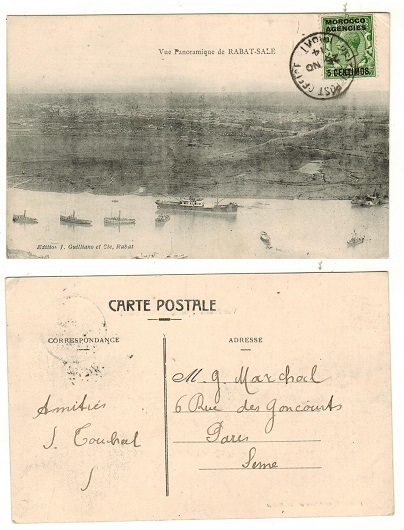 Vue Panoramique de RABAT-SALE
MOROCCO
AGENCIES
5 CENTIMOS
POST OFFICE
RABAT
NO
14
Edition J. Guilliano et Cie, Rabat
CARTE POSTALE
CORRESPONDANCE
ADRESSE
Amitiés
M. G. Marchal
6 Rue des Goncourts
Paris
Seine